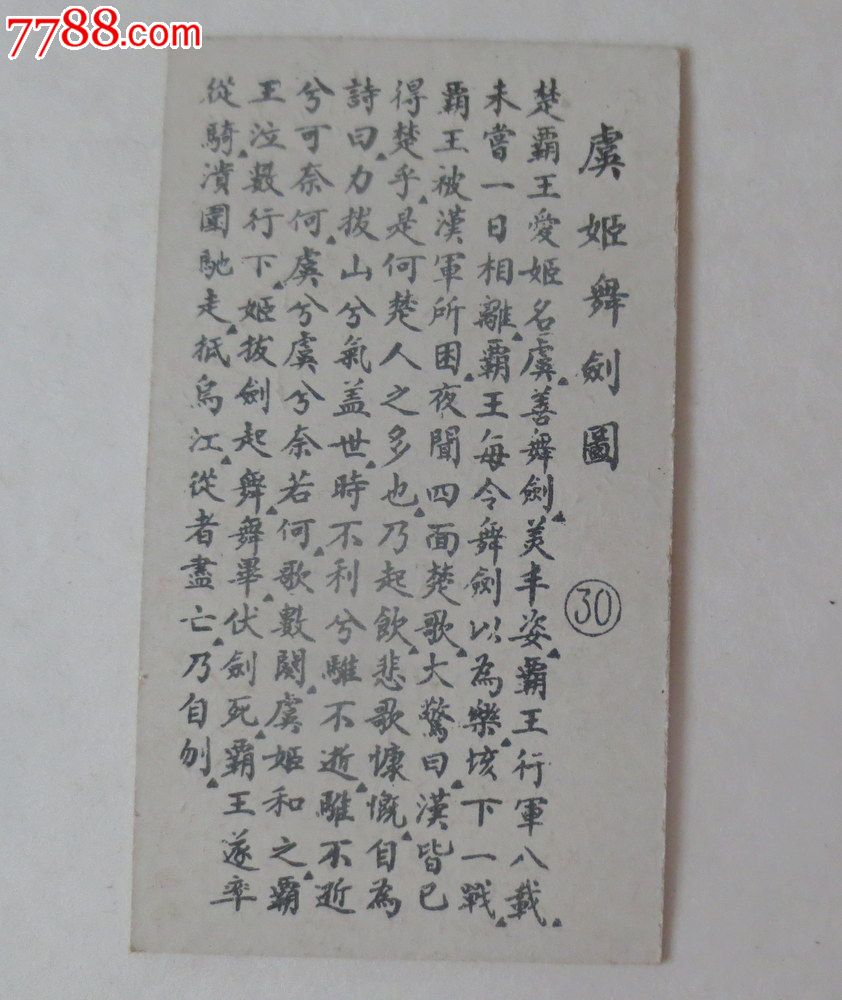 7788.com
虞姬舞劍圖
30
楚霸王愛姬名虞善舞劍美丰姿霸王行軍八載
未嘗一日相離霸王每令舞劍以為樂垓下一戰
霸王被漢軍所困夜聞四面楚歌大驚曰漢皆已
得楚乎是何楚人之多也乃起飲悲歌慷慨自為
詩曰力拔山兮氣蓋世時不利兮騅不逝騅不逝
兮可奈何虞兮虞兮奈若何歌數闋虞姬和之霸
王泣數行下姬拔劍起舞舞畢伏劍死霸王遂率
從騎潰圍馳走抵烏江從者盡亡乃自刎